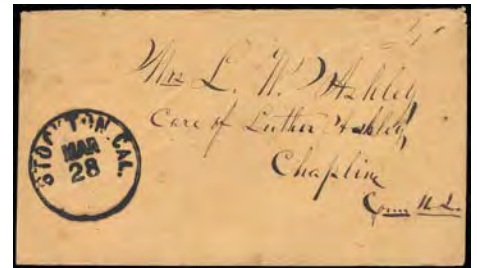 Mrs L. W. Ashley
Care of Luther Ashley
Chaplin
Conn
STOCKTON. CAL.
MAR
28